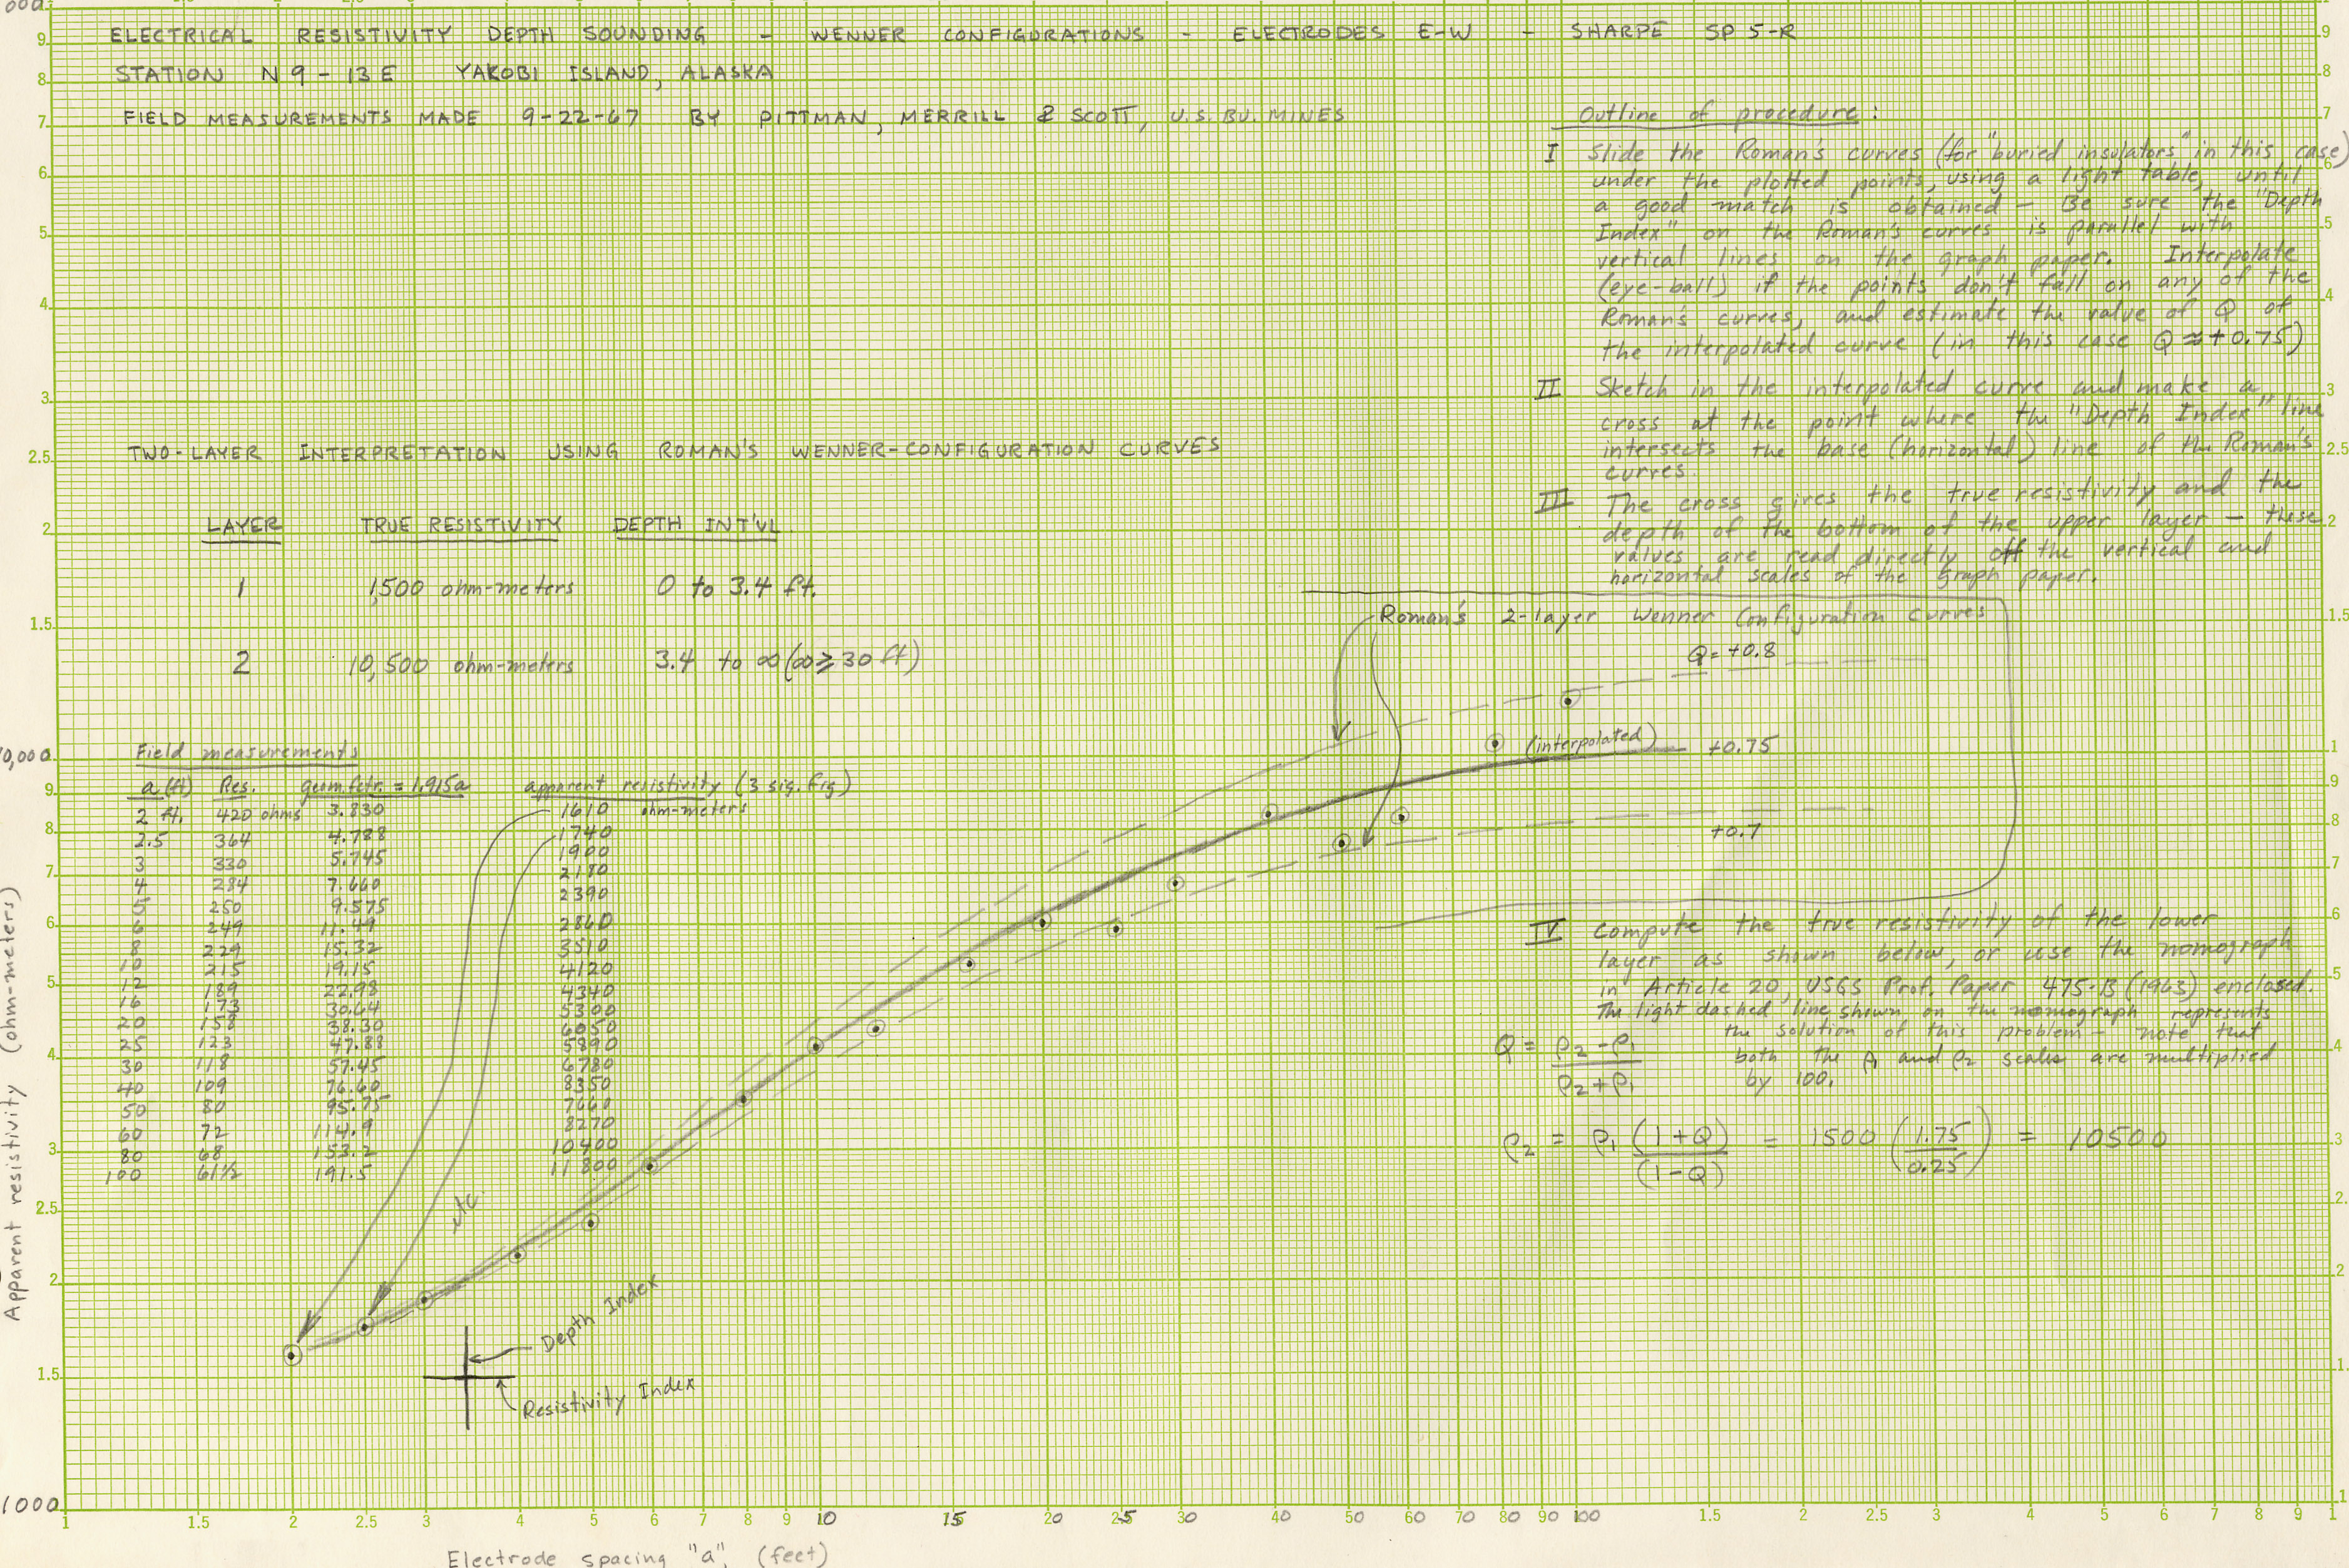 ELECTRICAL RESISTIVITY DEPTH SOUNDING - WENNER CONFIGURATIONS - ELECTRODES E-W - SHARPE SP 5-R
STATION N 9 - 13 E YAKOBI ISLAND, ALASKA
FIELD MEASUREMENTS MADE 9-22-67 BY PITTMAN, MERRILL & SCOTT, U.S. BU. MINES
Outline of procedure:
I Slide the Roman's curves (for "buried insulators" in this case)
under the plotted points, using a light table, until
a good match is obtained - Be sure the "Depth
Index" on the Roman's curves is parallel with
vertical lines on the graph paper. Interpolate
(eye-ball) if the points don't fall on any of the
Roman's curves, and estimate the value of Q of
the interpolated curve (in this case Q ≈ +0.75)
II Sketch in the interpolated curve and make a
cross at the point where the "Depth Index" line
intersects the base (horizontal) line of the Roman's
curves.
III The cross gives the true resistivity and the
depth of the bottom of the upper layer - these
values are read directly off the vertical and
horizontal scales of the graph paper.
TWO-LAYER INTERPRETATION USING ROMAN'S WENNER-CONFIGURATION CURVES
LAYER TRUE RESISTIVITY DEPTH INT'VL.
1 1,500 ohm-meters 0 to 3.4 ft.
2 10,500 ohm-meters 3.4 to ∞ (∞ ≥ 30 ft)
Roman's 2-layer Wenner Configuration curves
Q = +0.8
(interpolated) +0.75
+0.7
Field measurements
a (ft) Res. geom. fctr. = 1.915a apparent resistivity (3 sig. fig)
2 ft. 420 ohms 3.830 1610 ohm-meters
2.5 364 4.788 1740
3 330 5.745 1900
4 284 7.660 2180
5 250 9.575 2390
6 249 11.49 2860
8 229 15.32 3510
10 215 19.15 4120
12 189 22.98 4340
16 173 30.64 5300
20 158 38.30 6050
25 123 47.88 5890
30 118 57.45 6780
40 109 76.60 8350
50 80 95.75 7660
60 72 114.9 8270
80 68 153.2 10400
100 61½ 191.5 11800
IV Compute the true resistivity of the lower
layer as shown below, or use the nomograph
in Article 20, USGS Prof. Paper 475-B (1963) enclosed.
The light dashed line shown on the nomograph represents
the solution of this problem - note that
both the ρ₁ and ρ₂ scales are multiplied
by 100.
Q = ρ₂ - ρ₁ / ρ₂ + ρ₁
ρ₂ = ρ₁ (1+Q) / (1-Q) = 1500 (1.75 / 0.25) = 10500
Depth Index
Resistivity Index
Apparent resistivity (ohm-meters)
000
9
8
7
6
5
4
3
2.5
2
1.5
10,000
9
8
7
6
5
4
3
2.5
2
1.5
1000
9
8
7
6
5
4
3
2.5
2
1.5
1
9
8
7
6
5
4
3
2.
2
1.
1
1 1.5 2 2.5 3 4 5 6 7 8 9 10 15 20 25 30 40 50 60 70 80 90 100 1.5 2 2.5 3 4 5 6 7 8 9 1
Electrode spacing "a", (feet)